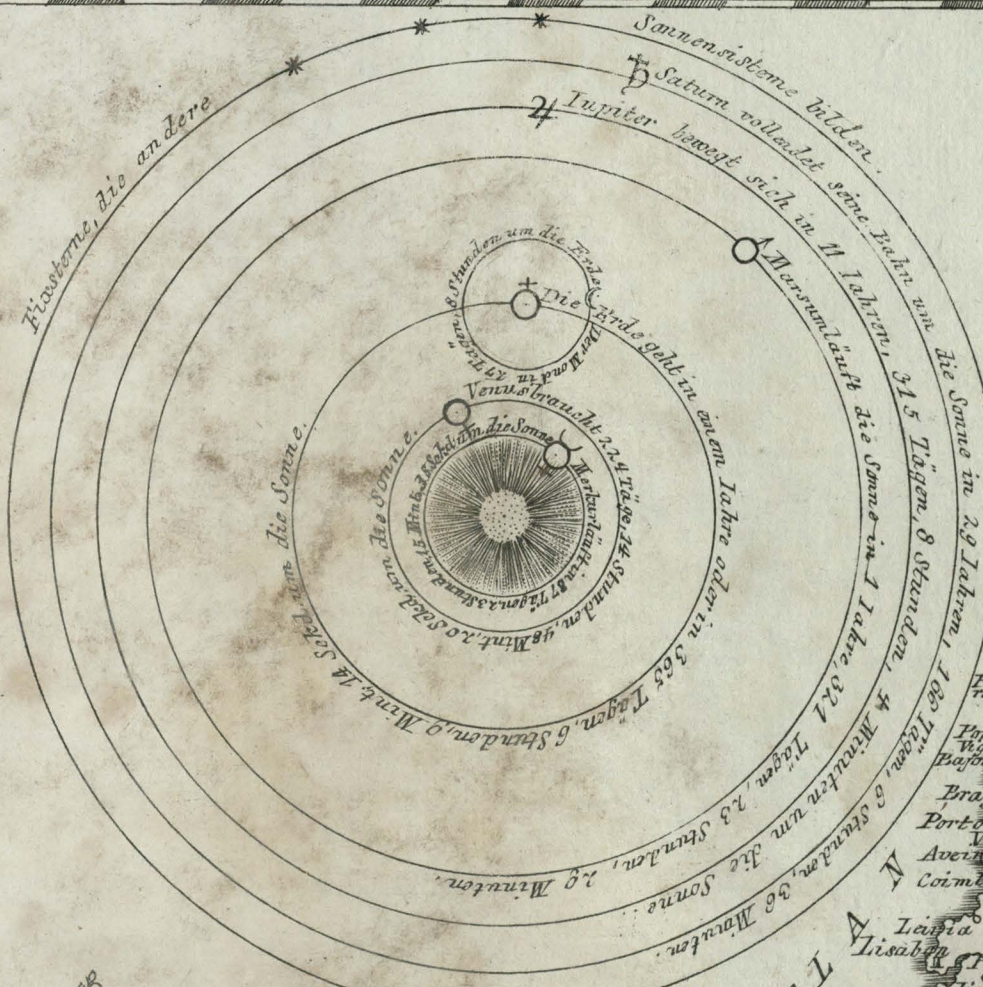 Fixsterne, die andere Sonnensisteme bilden.
♄ Saturn vollendet seine Bahn um die Sonne in 29 Iahren, 166 Tägen, 6 Stunden, 36 Minuten.
♃ Iupiter bewegt sich in 11 Iahren, 315 Tägen, 8 Stunden, 4 Minuten um die Sonne.
Mars umläuft die Sonne in 1 Iahre, 321 Tägen, 23 Stunden, 29 Minuten.
Die Erde geht in einem Iahre oder in 365 Tägen, 6 Stunden, 9 Mint, 14 Sekd. um die Sonne.
Der Mond in 27 Tägen, 8 Stunden um die Erde
Venus braucht 224 Täge, 14 Stunden, 48 Mint, 20 Sekd. um die Sonne.
Merkur läuft in 87 Tägen 23 Stunden, 15 Mint. 38 Sekd. um die Sonne
Bra
Porto
Avein
Coimb
Leiria
Lisabon
N
A
T